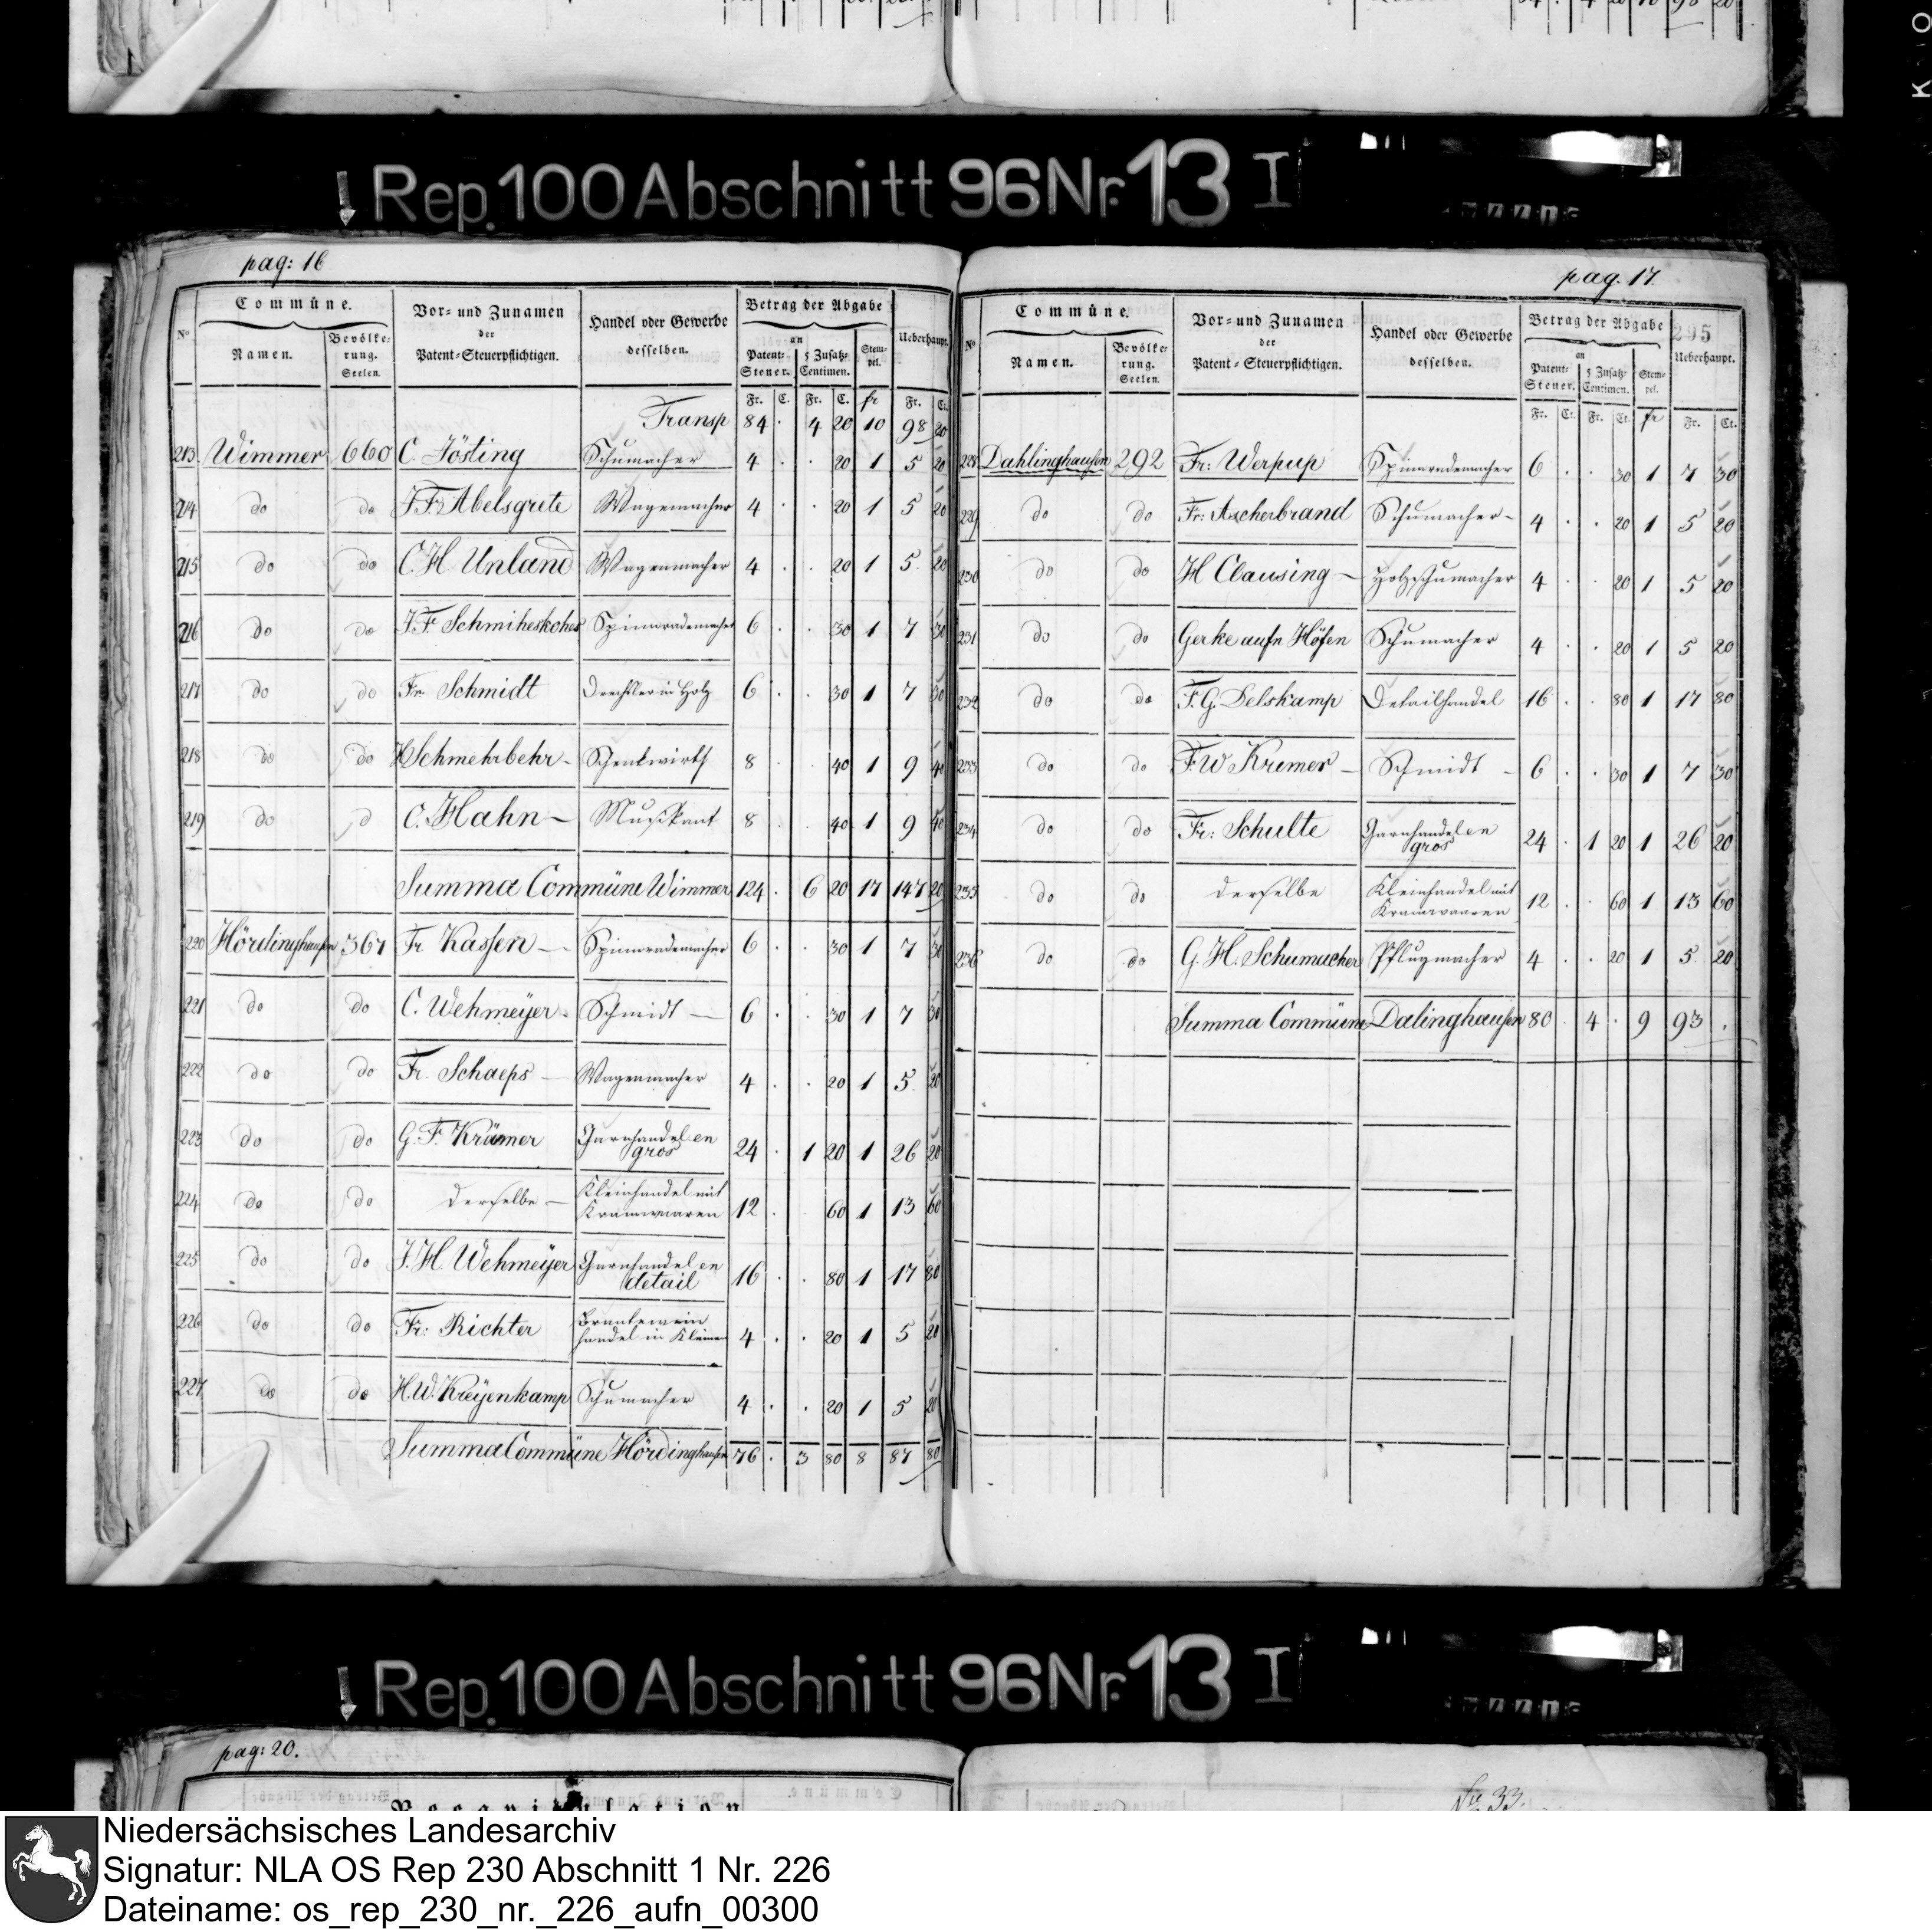 Rep. 100 Abschnitt 96 Nr. 13 I
pag: 16
Commüne.
Vor- und Zunamen
der
Patent-Steuerpflichtigen.
Handel oder Gewerbe
desselben.
Betrag der Abgabe
Ueberhaupt.
No
Namen.
Bevölke-
rung.
Seelen.
an
Patent-
Steuer.
5 Zusatz-
Centimen.
Stem-
pel.
Fr. C. Fr. C. fr Fr. Ct.
Transp 84 · 4 20 10 98 20
213 Wimmer 660 C. Jösting Schumacher 4 · · 20 1 5 20
214 do do J. F. Abelsgrete Wagenmacher 4 · · 20 1 5 20
215 do do C. H. Unland Wagenmacher 4 · · 20 1 5 20
216 do do J. F. Schmiheskohes Spinnrademacher 6 · · 30 1 7 30
217 do do Fr. Schmidt Drechsler in Holz 6 · · 30 1 7 30
218 do do H Schmehrbehr - Schenkwirth 8 · · 40 1 9 40
219 do d C. Hahn - Musikant 8 · · 40 1 9 40
Summa Commüne Wimmer 124 · 6 20 17 147 20
220 Hördinghausen 367 Fr. Kassen - Spinnrademacher 6 · · 30 1 7 30
221 do do C. Wehmeÿer - Schmidt - 6 · · 30 1 7 30
222 do do Fr. Schaeps - Wagenmacher 4 · · 20 1 5 20
223 do do G. F. Krümer Garnhandel en
gros 24 · 1 20 1 26 20
224 do do derselbe - Kleinhandel mit
Kramwaaren 12 · 60 1 13 60
225 do do J. H. Wehmeÿer Garnhandel en
detail 16 · · 80 1 17 80
226 do do Fr: Richter Brantewein
handel in Kleinen 4 · · 20 1 5 20
227 do do H. W. Kreÿenkamp Schumacher 4 · · 20 1 5 20
Summa Commüne Hördinghausen 76 · 3 80 8 87 80
pag. 17.
Commüne.
Vor- und Zunamen
der
Patent-Steuerpflichtigen.
Handel oder Gewerbe
desselben.
Betrag der Abgabe
295
Ueberhaupt.
No
Namen.
Bevölke-
rung.
Seelen.
an
Patent-
Steuer.
5 Zusatz-
Centimen.
Stem-
pel.
Fr. Ct. Fr. Ct. fr Fr. Ct.
228 Dahlinghausen 292 Fr: Werpup Spinnrademacher 6 · · 30 1 7 30
229 do do Fr: Ascherbrand Schumacher - 4 · · 20 1 5 20
230 do do H Clausing - Holzschumacher 4 · · 20 1 5 20
231 do do Gerke aufn Höfen Schumacher 4 · · 20 1 5 20
232 do do F. G. Delskamp Detailhandel 16 · · 80 1 17 80
233 do do F. W Krumer - Schmidt - 6 · · 30 1 7 30
234 do do Fr: Schulte Garnhandel en
gros 24 · 1 20 1 26 20
235 do do derselbe Kleinhandel mit
Kramwaaren 12 · · 60 1 13 60
236 do do G. H. Schumacher Pflugmacher 4 · · 20 1 5 20
Summa Commüne Dalinghausen 80 · 4 · 9 93 .
Rep. 100 Abschnitt 96 Nr. 13 I
pag: 20.
Niedersächsisches Landesarchiv
Signatur: NLA OS Rep 230 Abschnitt 1 Nr. 226
Dateiname: os_rep_230_nr._226_aufn_00300